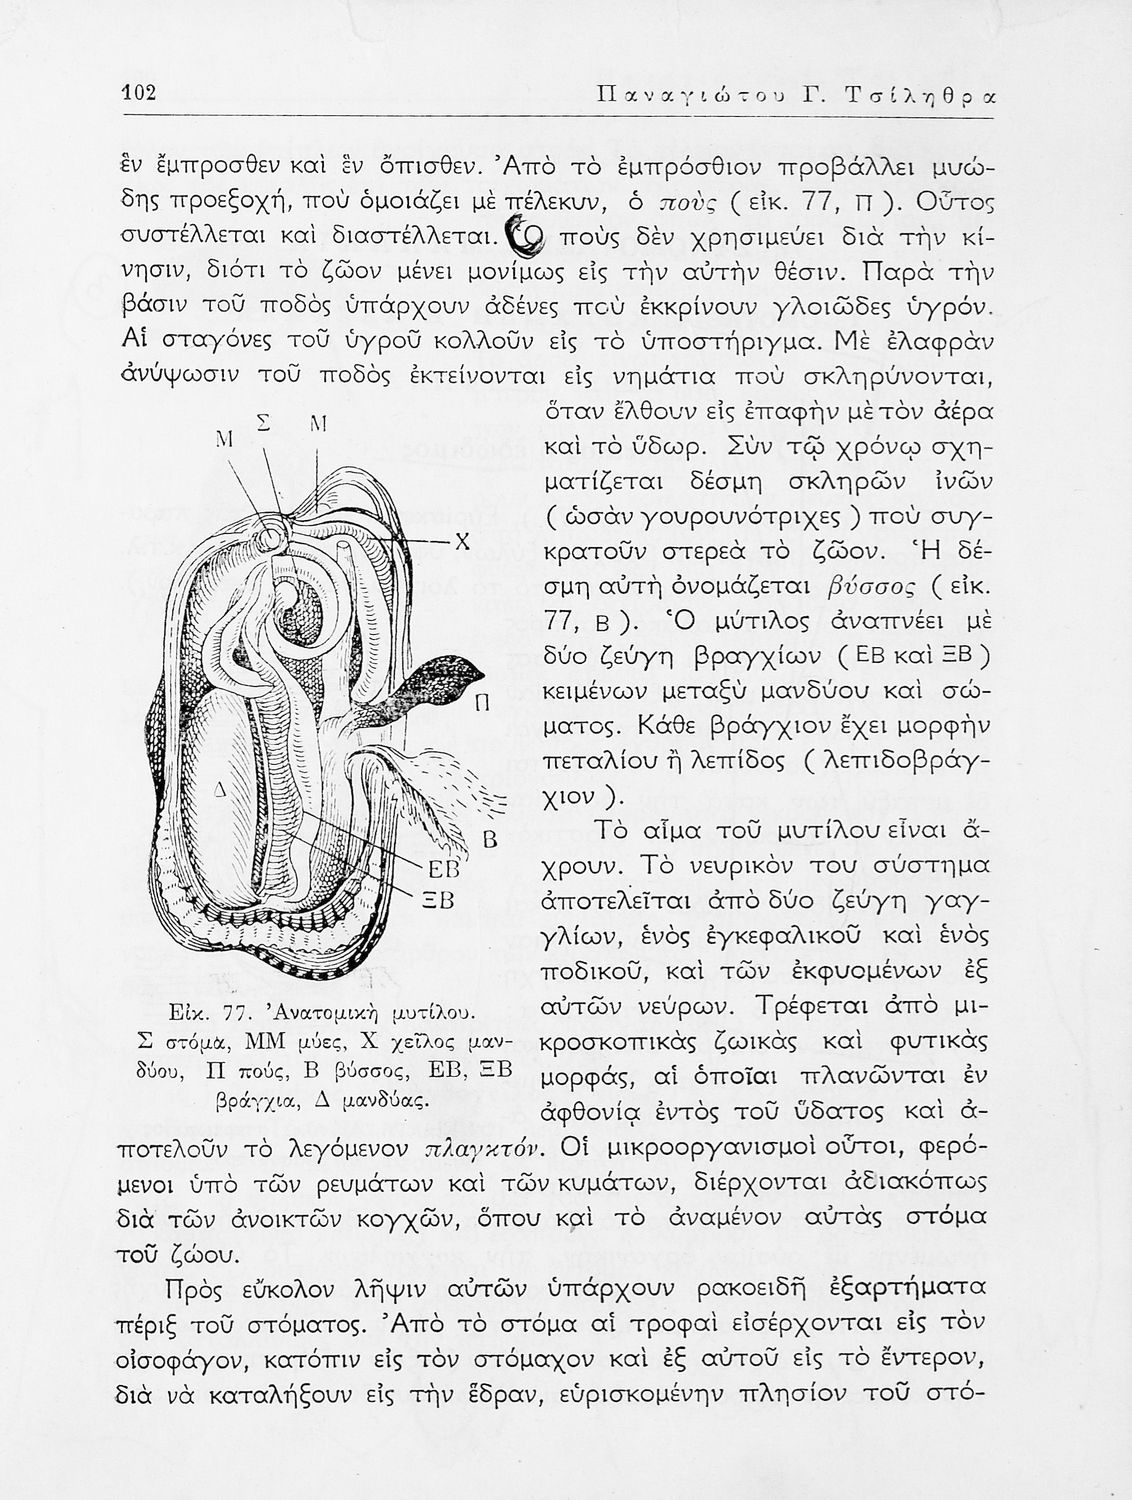 102
Παναγιώτου Γ. Τσίληθρα
ἓν ἔμπροσθεν καὶ ἓν ὄπισθεν. Ἀπὸ τὸ ἐμπρόσθιον προβάλλει μυώ-
δης προεξοχή, ποὺ ὁμοιάζει μὲ πέλεκυν, ὁ ποὺς ( εἰκ. 77, Π ). Οὗτος
συστέλλεται καὶ διαστέλλεται. Ὁ ποὺς δὲν χρησιμεύει διὰ τὴν κί-
νησιν, διότι τὸ ζῶον μένει μονίμως εἰς τὴν αὐτὴν θέσιν. Παρὰ τὴν
βάσιν τοῦ ποδὸς ὑπάρχουν ἀδένες ποὺ ἐκκρίνουν γλοιῶδες ὑγρόν.
Αἱ σταγόνες τοῦ ὑγροῦ κολλοῦν εἰς τὸ ὑποστήριγμα. Μὲ ἐλαφρὰν
ἀνύψωσιν τοῦ ποδὸς ἐκτείνονται εἰς νημάτια ποὺ σκληρύνονται,
ὅταν ἔλθουν εἰς ἐπαφὴν μὲ τὸν ἀέρα
καὶ τὸ ὕδωρ. Σὺν τῷ χρόνῳ σχη-
ματίζεται δέσμη σκληρῶν ἰνῶν
( ὡσὰν γουρουνότριχες ) ποὺ συγ-
κρατοῦν στερεὰ τὸ ζῶον. Ἡ δέ-
σμη αὐτὴ ὀνομάζεται βύσσος ( εἰκ.
77, Β ). Ὁ μύτιλος ἀναπνέει μὲ
δύο ζεύγη βραγχίων ( ΕΒ καὶ ΞΒ )
κειμένων μεταξὺ μανδύου καὶ σώ-
ματος. Κάθε βράγχιον ἔχει μορφὴν
πεταλίου ἢ λεπίδος ( λεπιδοβράγ-
χιον ).
Τὸ αἷμα τοῦ μυτίλου εἶναι ἄ-
χρουν. Τὸ νευρικὸν του σύστημα
ἀποτελεῖται ἀπὸ δύο ζεύγη γαγ-
γλίων, ἑνὸς ἐγκεφαλικοῦ καὶ ἑνὸς
ποδικοῦ, καὶ τῶν ἐκφυομένων ἐξ
αὐτῶν νεύρων. Τρέφεται ἀπὸ μι-
κροσκοπικὰς ζωικὰς καὶ φυτικὰς
μορφάς, αἱ ὁποῖαι πλανῶνται ἐν
ἀφθονίᾳ ἐντὸς τοῦ ὕδατος καὶ ἀ-
Μ Σ Μ
Χ
Π
Δ
Β
ΕΒ
ΞΒ
Εἰκ. 77. Ἀνατομικὴ μυτίλου.
Σ στόμα, ΜΜ μύες, Χ χεῖλος μαν-
δύου, Π πούς, Β βύσσος, ΕΒ, ΞΒ
βράγχια, Δ μανδύας.
ποτελοῦν τὸ λεγόμενον πλαγκτόν. Οἱ μικροοργανισμοὶ οὗτοι, φερό-
μενοι ὑπὸ τῶν ρευμάτων καὶ τῶν κυμάτων, διέρχονται ἀδιακόπως
διὰ τῶν ἀνοικτῶν κογχῶν, ὅπου καὶ τὸ ἀναμένον αὐτὰς στόμα
τοῦ ζώου.
Πρὸς εὔκολον λῆψιν αὐτῶν ὑπάρχουν ρακοειδῆ ἐξαρτήματα
πέριξ τοῦ στόματος. Ἀπὸ τὸ στόμα αἱ τροφαὶ εἰσέρχονται εἰς τὸν
οἰσοφάγον, κατόπιν εἰς τὸν στόμαχον καὶ ἐξ αὐτοῦ εἰς τὸ ἔντερον,
διὰ νὰ καταλήξουν εἰς τὴν ἕδραν, εὑρισκομένην πλησίον τοῦ στό-